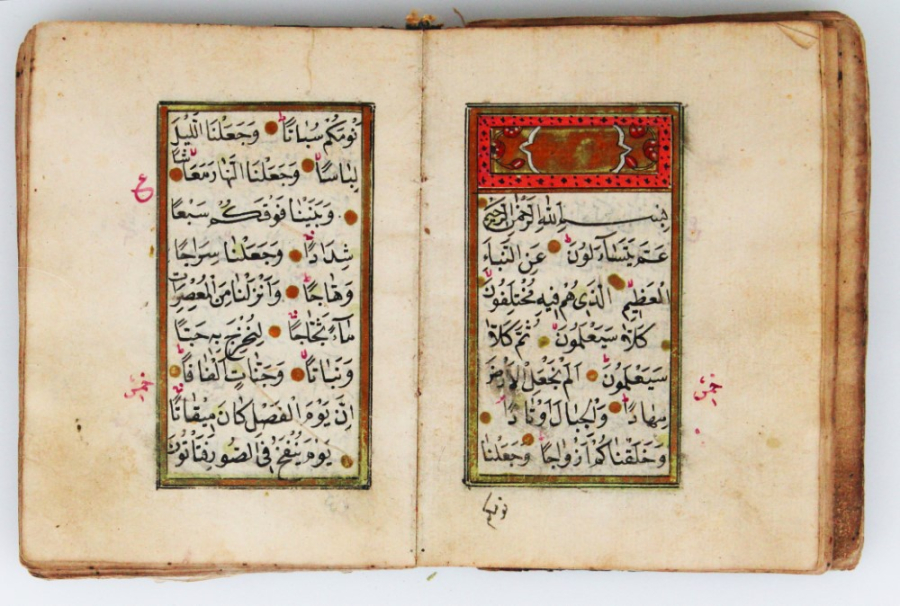 بِسْمِ اللهِ الرَّحْمٰنِ الرَّحِيمِ
عَمَّ يَتَسَاءَلُونَ عَنِ النَّبَاءِ
الْعَظِيمِ الَّذِي هُمْ فِيهِ مُخْتَلِفُونَ
كَلَّا سَيَعْلَمُونَ ثُمَّ كَلَّا
سَيَعْلَمُونَ اَلَمْ نَجْعَلِ الْاَرْضَ
مِهَادًا وَالْجِبَالَ اَوْتَادًا
وَخَلَقْنَاكُمْ اَزْوَاجًا وَجَعَلْنَا
خمس
نومكم
نَوْمَكُمْ سُبَاتًا وَجَعَلْنَا الَّيْلَ
لِبَاسًا وَجَعَلْنَا النَّهَارَ مَعَاشًا
وَبَنَيْنَا فَوْقَكُمْ سَبْعًا
شِدَادًا وَجَعَلْنَا سِرَاجًا
وَهَّاجًا وَاَنْزَلْنَا مِنَ الْمُعْصِرَاتِ
مَاءً ثَجَّاجًا لِنُخْرِجَ بِهِ حَبًّا
وَنَبَاتًا وَجَنَّاتٍ اَلْفَافًا
اِنَّ يَوْمَ الْفَصْلِ كَانَ مِيقَاتًا
يَوْمَ يُنْفَخُ فِي الصُّورِ فَتَاْتُونَ
ع
خمس